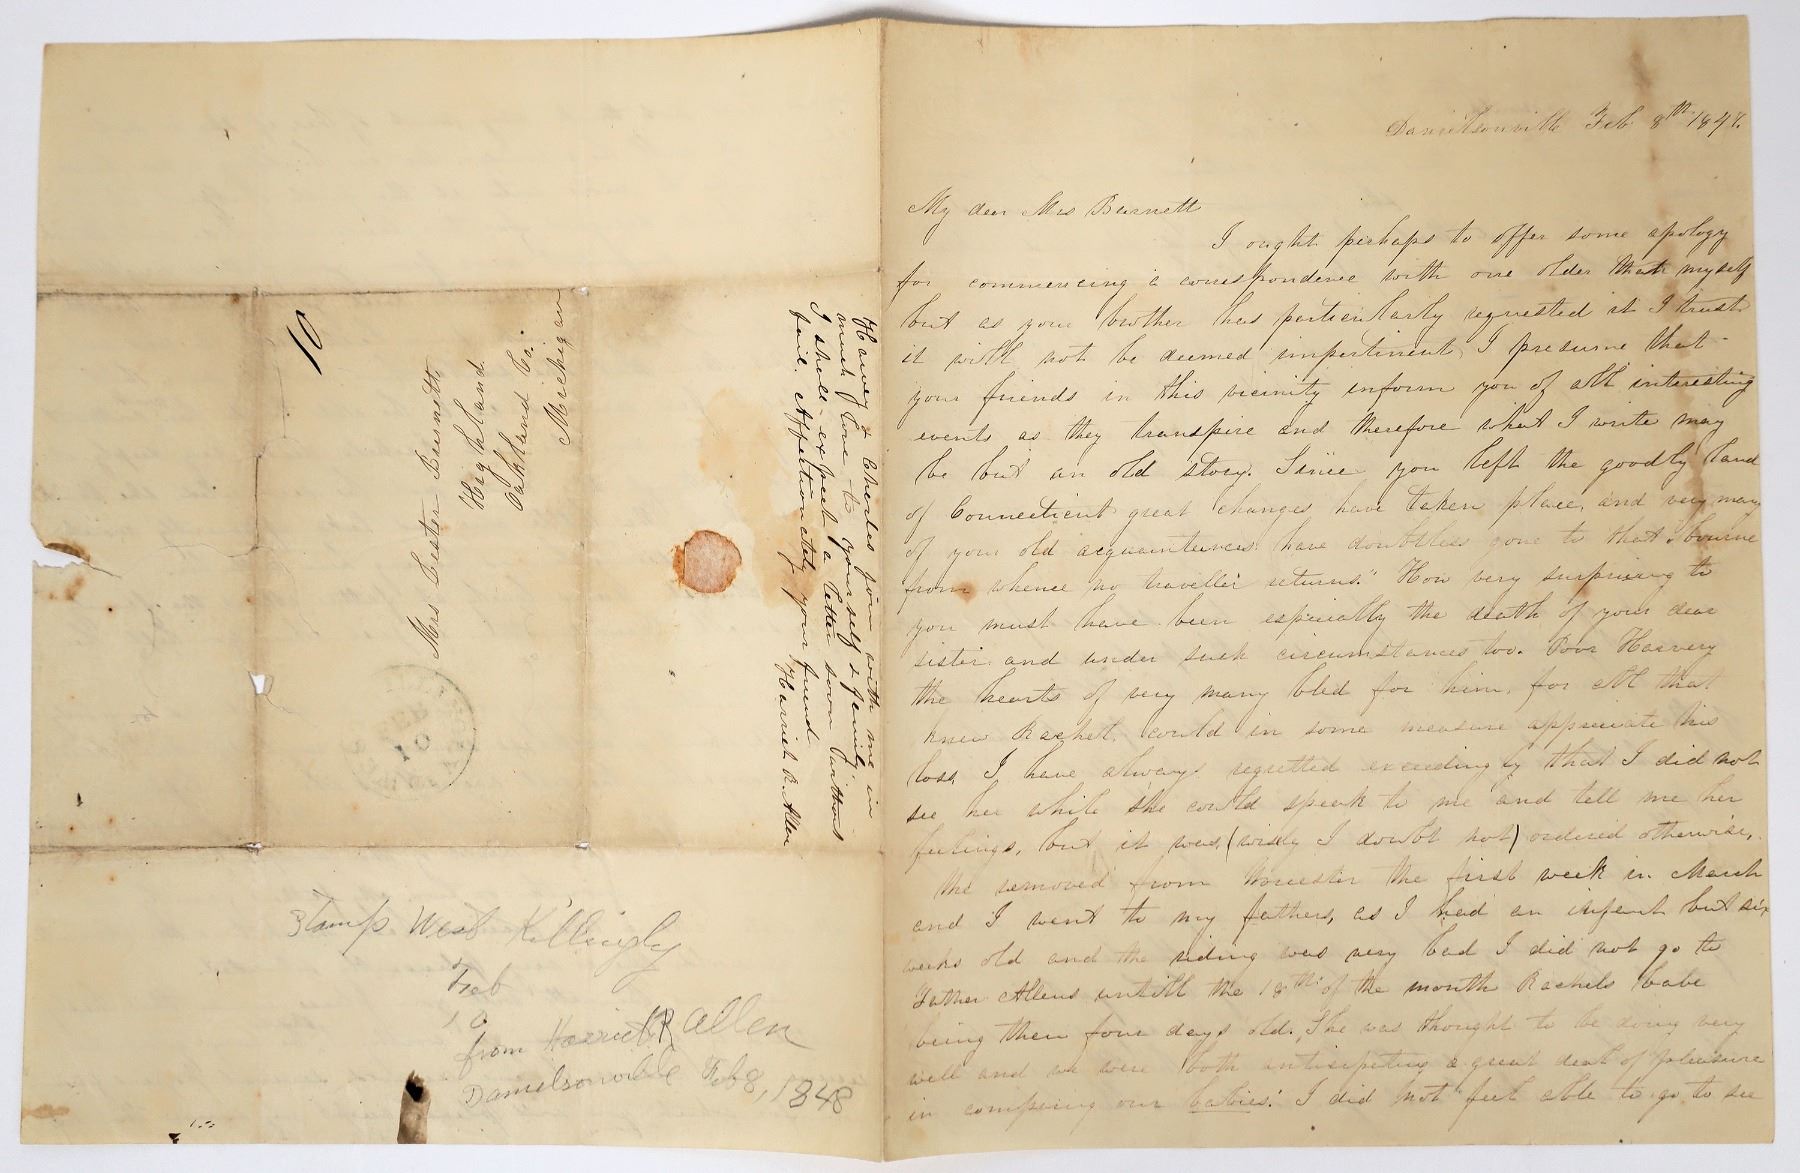 Danielsonville Feb 8th 1848.
My dear Mrs Burnett
I ought perhaps to offer some apology
for commencing a correspondence with one older than myself
but as your brother has particularly requested it I trust
it will not be deemed impertinent, I presume that
your friends in this vicinity inform you of all interesting
events as they transpire and therefore what I write may
be but an old story. Since you left the goodly land
of Connecticut great changes have taken place, and very many
of your old acquaintences have doubtless gone to that "bourne
from whence no traveller returns." How very surprising to
you must have been especially the death of your dear
sister and under such circumstances too. Poor Harvery
the hearts of very many bled for him, for all that
knew Rachel could in some measure appreciate his
loss, I have always regretted exceedingly that I did not
see her while she could speak to me and tell me her
feelings, but it was, (wisely I doubt not) ordered otherwise,
We removed from Worcester the first week in March
and I went to my fathers, as I had an infant but six
weeks old and the riding was very bad I did not go to
Father Allens untill the 18th of the month Rachels babe
being then four days old. She was thought to be doing very
well and we were both antisipating a great deal of pleasure
in comparing our babies. I did not feel able to go to see
Harvey & Charles join with me in
much love to yourself & family
I shall expect a letter soon without
fail. Affectionately your friend
Harriet R. Allen
10
Mrs Lester Burnett,
Highland.
Oakland Co.
Michigan
10
Stamp West Killingly
Feb
10
from Harriet R Allen
Danielsonville Feb 8, 1848